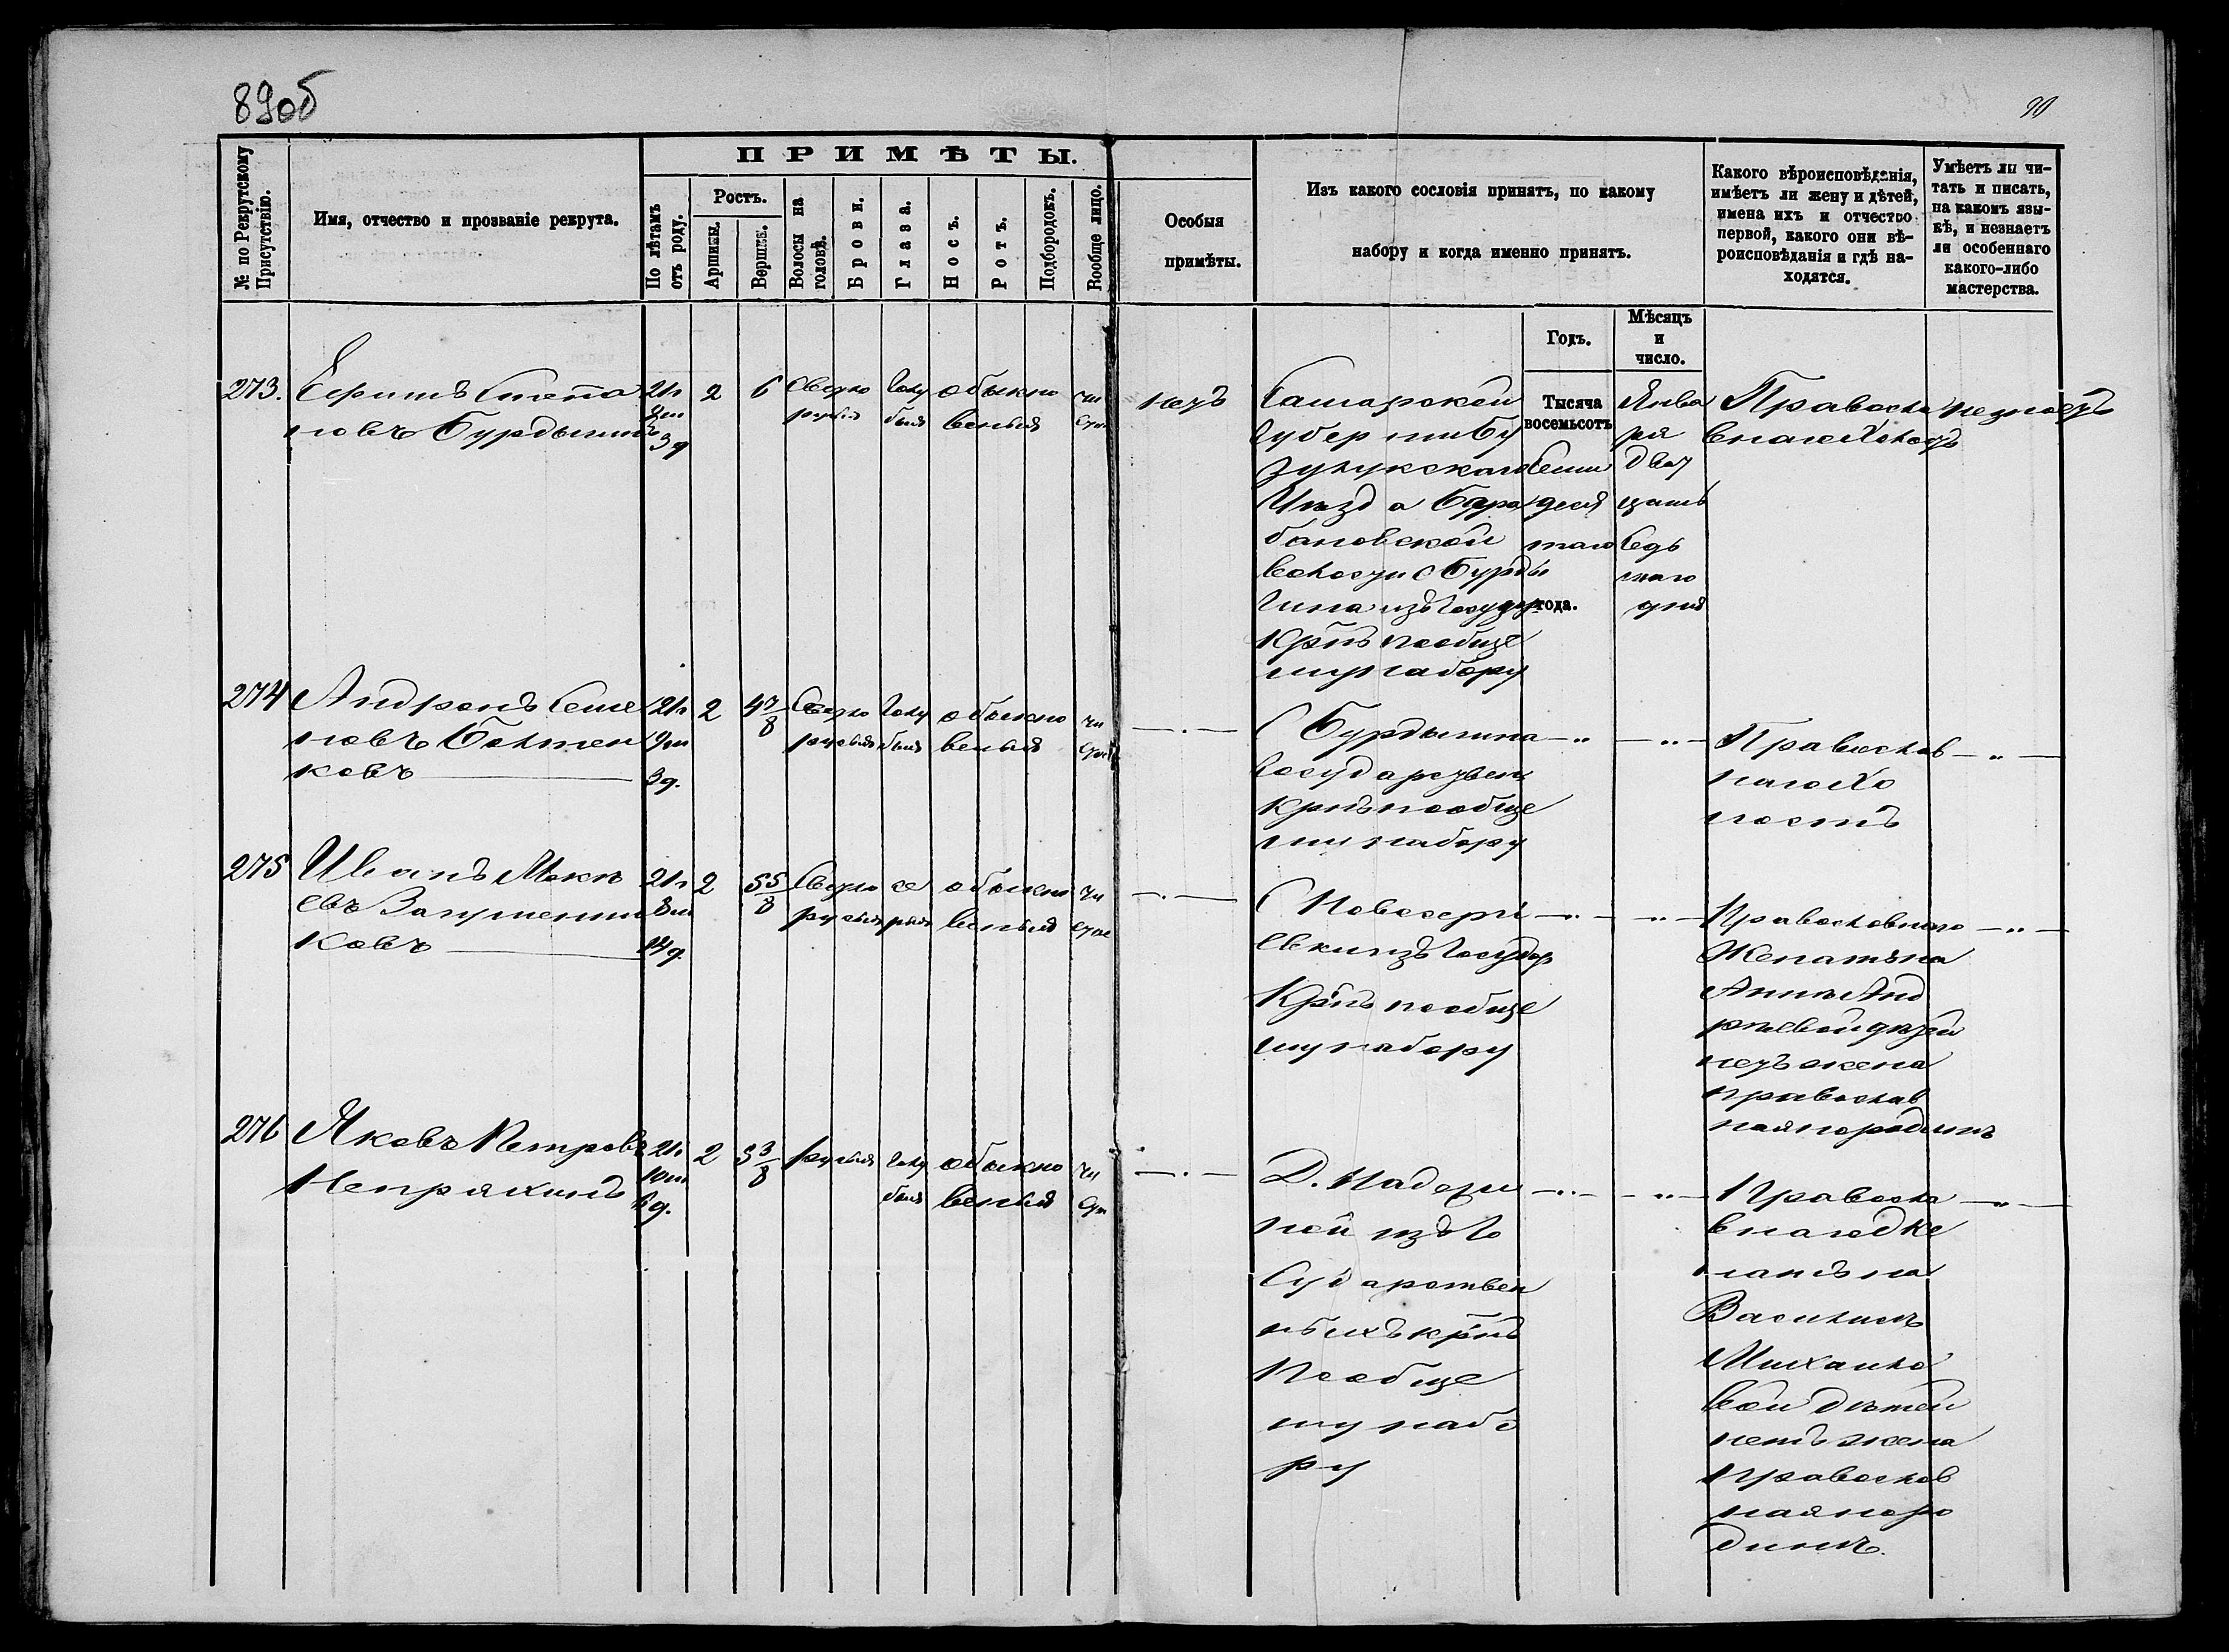 89об
90
ПРИМѢТЫ.
№ по Рекрутскому Присутствію.
Имя, отчество и прозваніе рекрута.
По лѣтамъ отъ роду.
Ростъ.
Аршины.
Вершки.
Волосы на головѣ.
Брови.
Глаза.
Носъ.
Ротъ.
Подбородокъ.
Вообще лицо.
Особыя
примѣты.
Изъ какого сословія принятъ, по какому
набору и когда именно принятъ.
Какого вѣроисповѣданія,
имѣетъ ли жену и дѣтей,
имена ихъ и отчество
первой, какого они вѣ-
роисповѣданія и гдѣ на-
ходятся.
Умѣетъ ли чи-
тать и писать,
на какомъ язы-
кѣ, и незнаетъ
ли особеннаго
какого-либо
мастерства.
Годъ.
Мѣсяцъ
и
число.
273. Ефимъ Степа
новъ Бурдыгинъ
21г
3д
2 6
Свѣтло
русыя
Голу
быя
обыкно
венныя
чи
стое
нетъ
Самарской
Губерніи Бу
зулукскаго
Уѣзда Бара
бановской
волости С Бурды
гина изъ Государ
Крѣнъ по обще
му набору
Тысяча
восемьсотъ
Семи
деся
таго
года.
Янва
ря
двад
цать
седь
маго
дня
Правосла
внаго Холостъ
неумеетъ
274 Андронъ Семе
новъ Болтен
ковъ
21г
9м
3д.
2 4 7/8
Светло
русыя
Голу
быя
обыкно
венныя
чи
стое
С Бурдыгина
Государствен
крнъ по обще
му набору
Православ
наго Хо
лостъ
275 Иванъ Моке
евъ Запушенни
ковъ
21г
8м
2 5 5/8
Светло
русыя
се
рыя
обыкно
венныя
чи
стое
С Новосерги
евки изъ Государ
Крѣнъ по обще
му набору
Православнаго
Женатъ на
Анне Анд
реевой детей
нетъ жена
православ
ная на родинѣ
276 Яковъ Петровъ
Непряхинъ
21г
10м
6д.
2 5 3/8
русыя
голу
быя
обыкно
венныя
чи
стое
Д.
ной изъ Го
сударствен
ныхъ крѣнъ
По обще
му набо
ру
Правосла
внаго Же
натъ на
Василисѣ
Михайло
вой детей
нетъ жена
православ
ная на ро
динѣ.